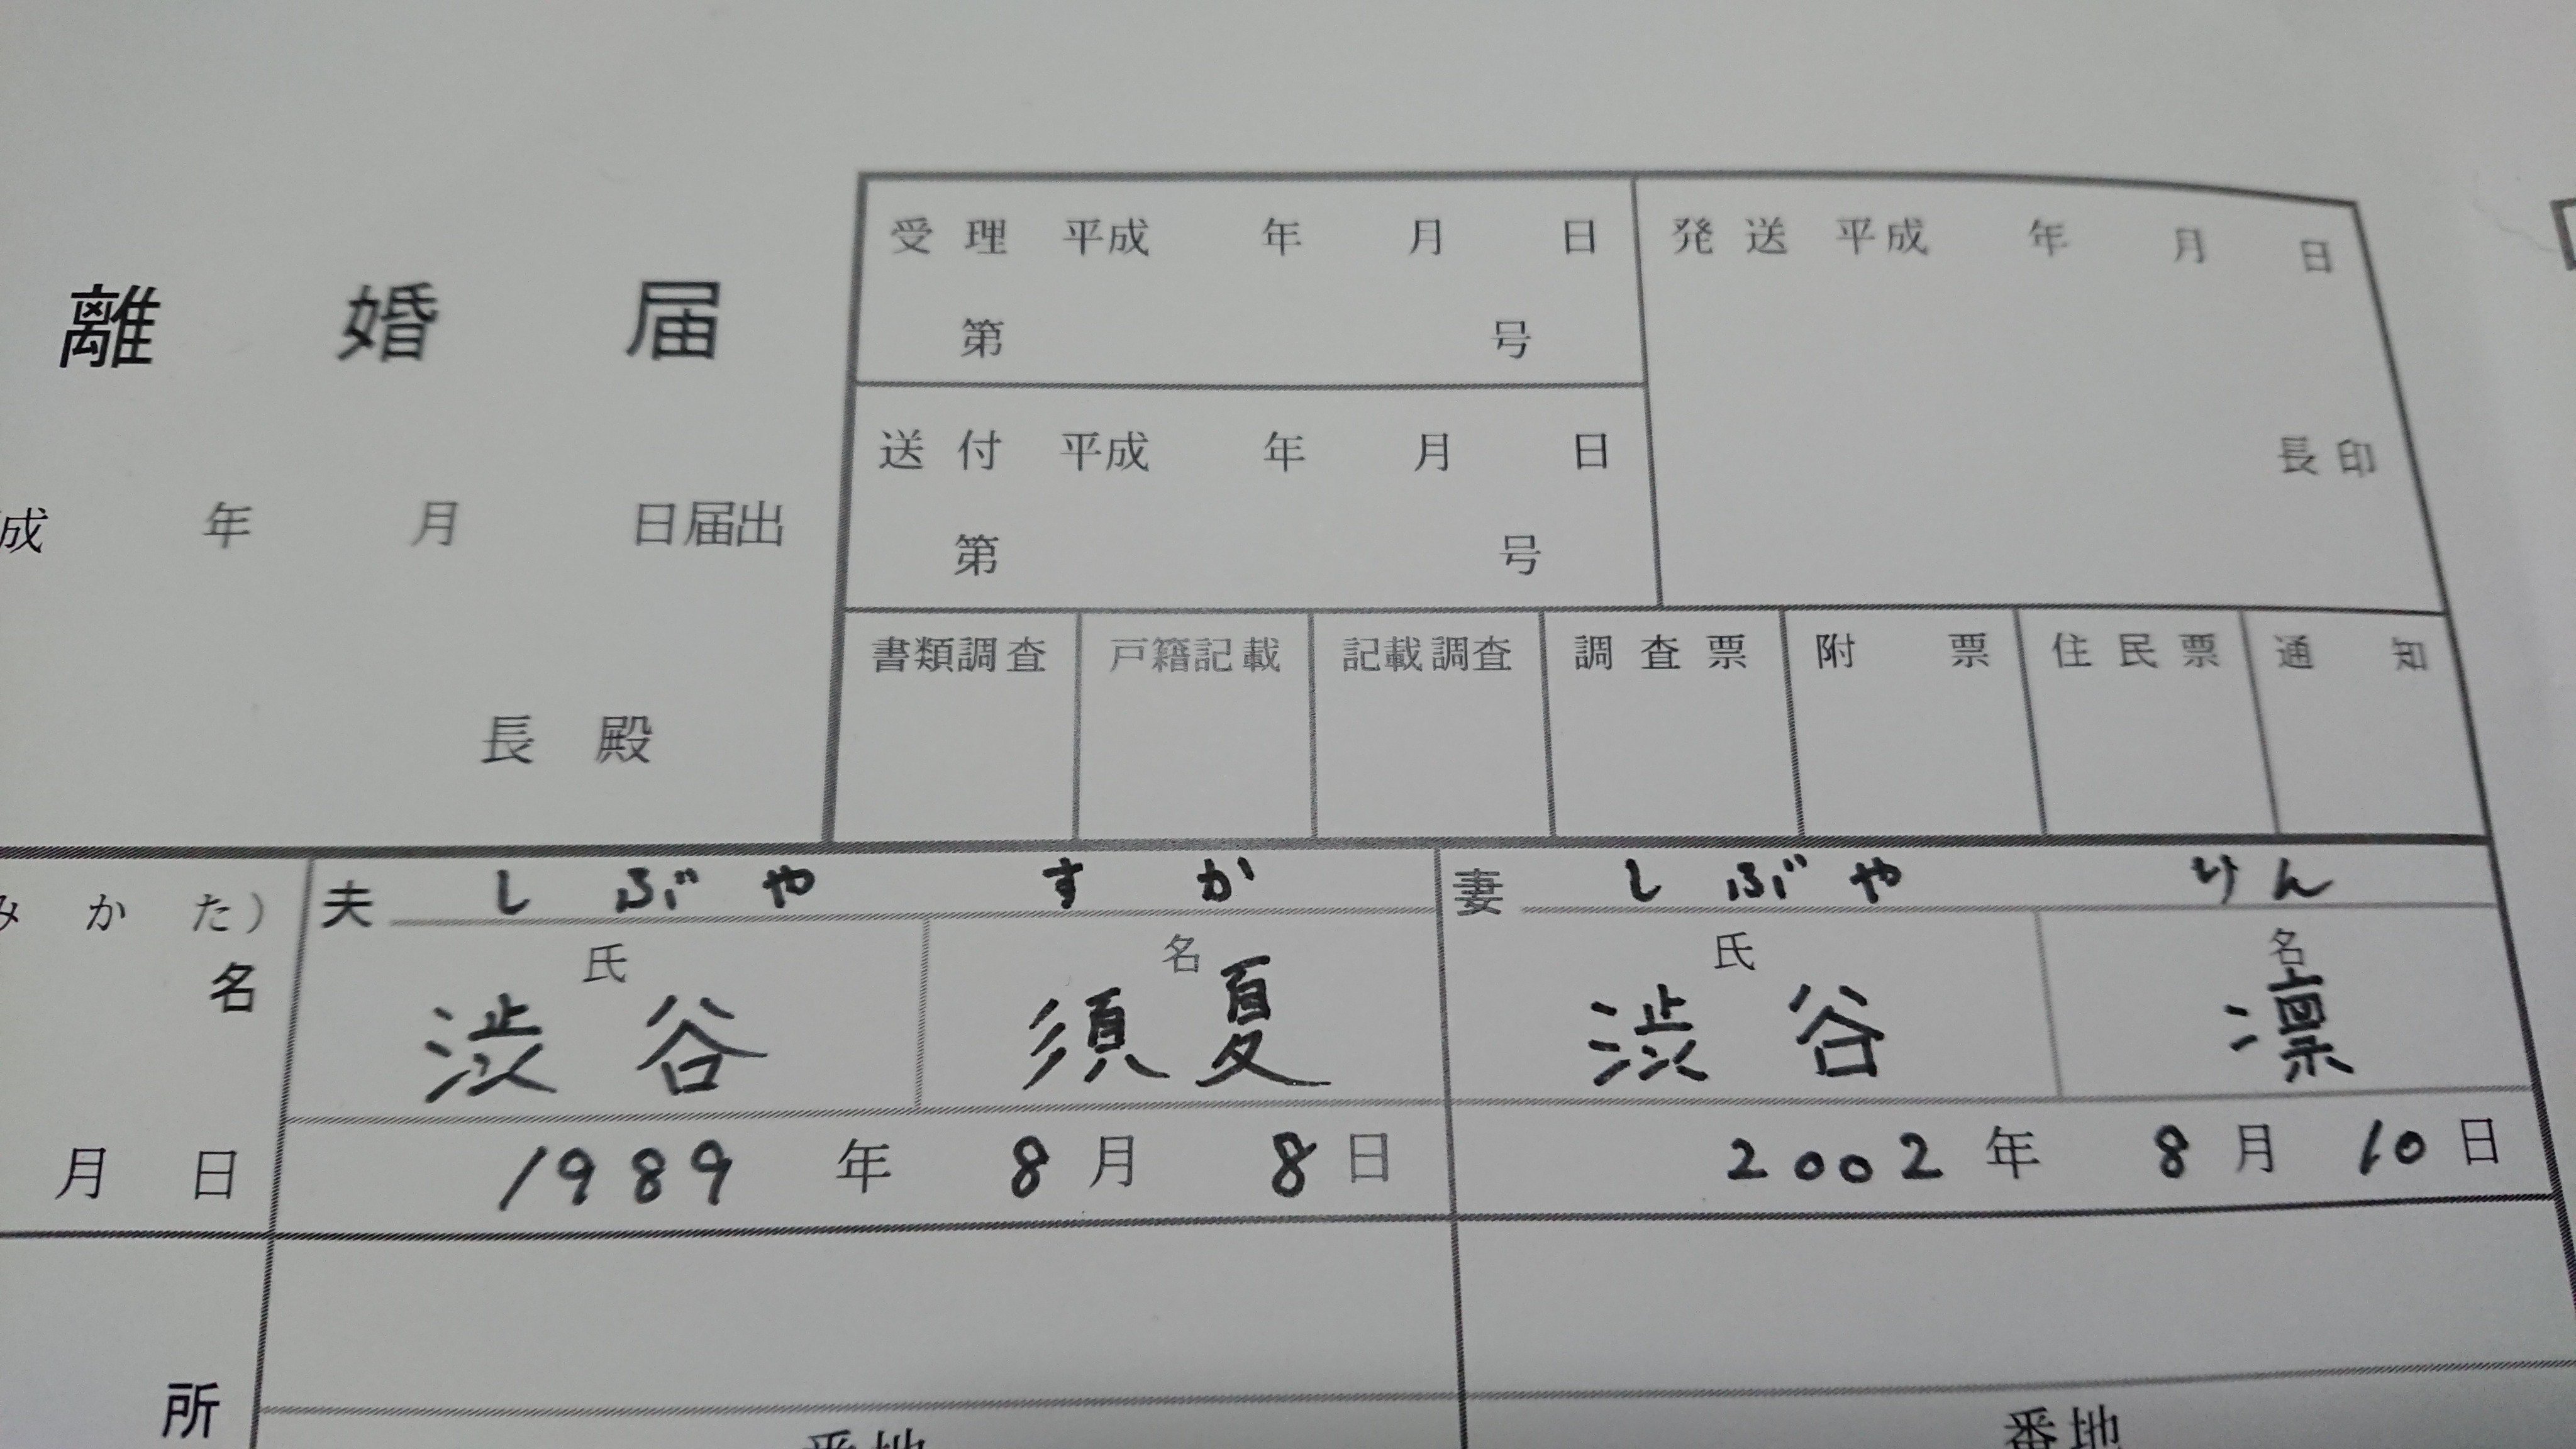 離婚届
成 年 月 日届出
長殿
受理 平成 年 月 日
第 号
発送 平成 年 月 日
長印
送付 平成 年 月 日
第 号
書類調査 戸籍記載 記載調査 調査票 附票 住民票 通知
みかた) 夫 しぶや すか 妻 しぶや りん
名 氏 名 氏 名
渋谷 須夏 渋谷 凛
月 日 1989年 8月 8日 2002年 8月 10日
所
番地 番地